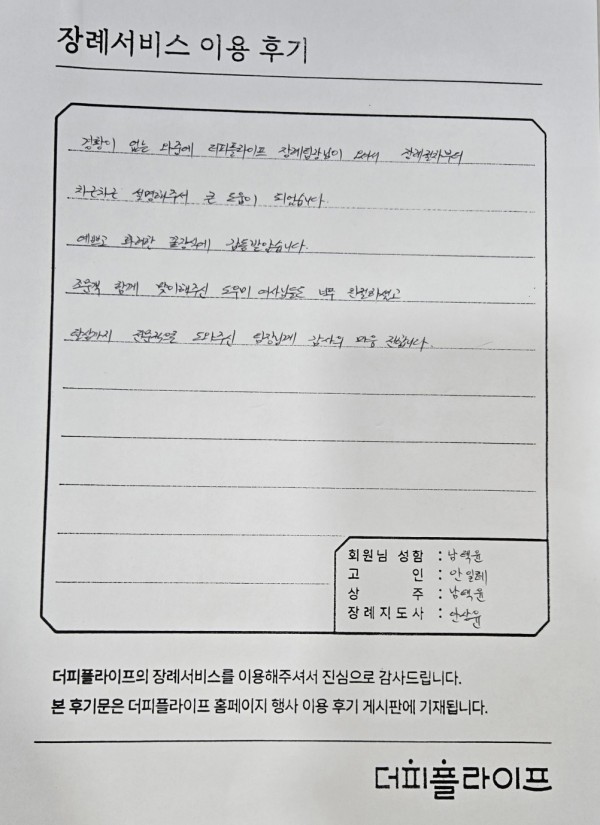 장례서비스 이용 후기
경황이 없는 와중에 더피플라이프 장례팀장님이 오셔서 장례절차부터
차근차근 설명해주셔서 큰 도움이 되었습니다.
예쁘고 화려한 꽃장식에 감동받았습니다.
조문객 함께 맞이해주신 도우미 여사님들도 너무 친절하셨고
발인까지 전문적으로 도와주신 팀장님께 감사의 마음 전합니다.
회원님 성함 : 남택윤
고 인 : 안일례
상 주 : 남택윤
장례지도사 : 안상윤
더피플라이프의 장례서비스를 이용해주셔서 진심으로 감사드립니다.
본 후기문은 더피플라이프 홈페이지 행사 이용 후기 게시판에 기재됩니다.
더피플라이프